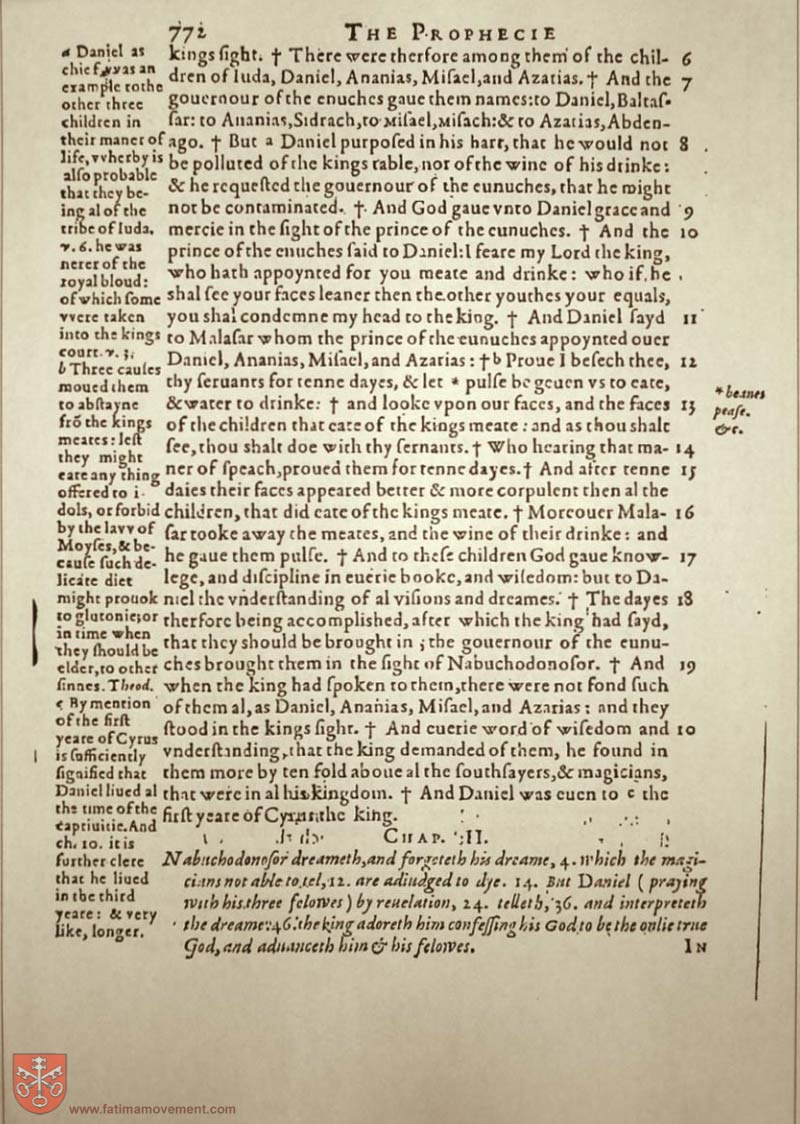 772
THE PROPHECIE
kings ſight. † There were therfore among them of the chil- 6
dren of Iuda, Daniel, Ananias, Miſael, and Azarias. † And the 7
gouernour of the enuches gaue them names: to Daniel, Baltaſ-
ſar: to Ananias, Sidrach, to Miſael, Miſach: & to Azarias, Abden-
ago. † But a Daniel purpoſed in his hart, that he would not 8
be polluted of the kings table, nor of the wine of his drinke:
& he requeſted the gouernour of the eunuches, that he might
not be contaminated. † And God gaue vnto Daniel grace and 9
mercie in the ſight of the prince of the eunuches. † And the 10
prince of the enuches ſaid to Daniel: I feare my Lord the king,
who hath appoynted for you meate and drinke: who if he
shal ſee your faces leaner then the other youthes your equals,
you shal condemne my head to the king. † And Daniel ſayd 11
to Malaſar whom the prince of the eunuches appoynted ouer
Daniel, Ananias, Miſael, and Azarias: † b Proue I beſech thee, 12
thy ſeruants for tenne dayes, & let * pulſe be geuen vs to eate,
& water to drinke: † and looke vpon our faces, and the faces 13
of the children that eate of the kings meate: and as thou shalt
ſee, thou shalt doe with thy ſeruants. † Who hearing that ma- 14
ner of ſpeach, proued them for tenne dayes. † And after tenne 15
daies their faces appeared better & more corpulent then al the
children, that did eate of the kings meate. † Moreouer Mala- 16
ſar tooke away the meates, and the wine of their drinke: and
he gaue them pulſe. † And to theſe children God gaue know- 17
lege, and diſcipline in euerie booke, and wiſedom: but to Da-
niel the vnderſtanding of al viſions and dreames. † The dayes 18
therfore being accomplished, after which the king had ſayd,
that they should be brought in; the gouernour of the eunu-
ches brought them in the ſight of Nabuchodonoſor. † And 19
when the king had ſpoken to them, there were not fond ſuch
of them al, as Daniel, Ananias, Miſael, and Azarias: and they
ſtood in the kings ſight. † And euerie word of wiſedom and 10
vnderſtanding, that the king demanded of them, he found in
them more by ten fold aboue al the ſouthſayers, & magicians,
that were in al his kingdom. † And Daniel was euen to c the
firſt yeare of Cyrus the king.
a Daniel as
chief vvas an
example to the
other three
children in
their maner of
life, vvherby is
alſo probable
that they be-
ing al of the
tribe of Iuda.
v. 6. he was
nerer of the
royal bloud:
of which ſome
vvere taken
into the kings
court. v. 3.
b Three cauſes
moued them
to abſtayne
frõ the kings
meates: leſt
they might
eate any thing
offered to i-
dols, or forbid
by the lavv of
Moyſes, & be-
cauſe ſuch de-
licate diet
might prouok
to glutonie, or
in time when
they ſhould be
elder, to other
ſinnes. Theod.
c By mention
of the firſt
yeare of Cyrus
is ſufficiently
ſignified that
Daniel liued al
the time of the
captiuitie. And
ch. 10. it is
further clere
that he liued
in the third
yeare: & very
like, longer.
* beanes
peaſe.
&c.
CHAP. II.
Nabuchodonoſor dreameth, and forgeteth his dreame, 4. which the magi-
cians not able to tel, 12. are adiudged to dye. 14. But Daniel (praying
with his three felowes) by reuelation, 24. telleth, 36. and interpreteth
the dreame: 46. the king adoreth him confeſſing his God to be the onlie true
God, and aduanceth him & his felowes.
IN
www.fatimamovement.com